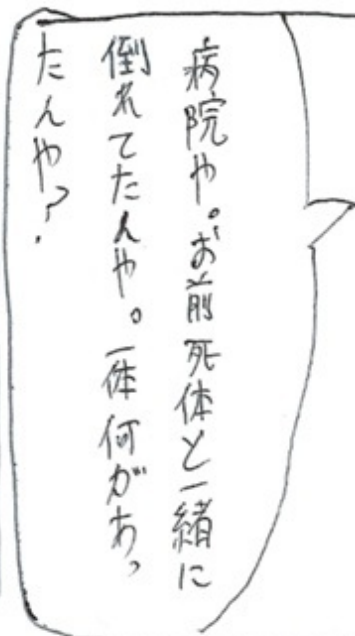 病院や。お前死体と一緒に
倒れてたんや。一体何があっ
たんや?